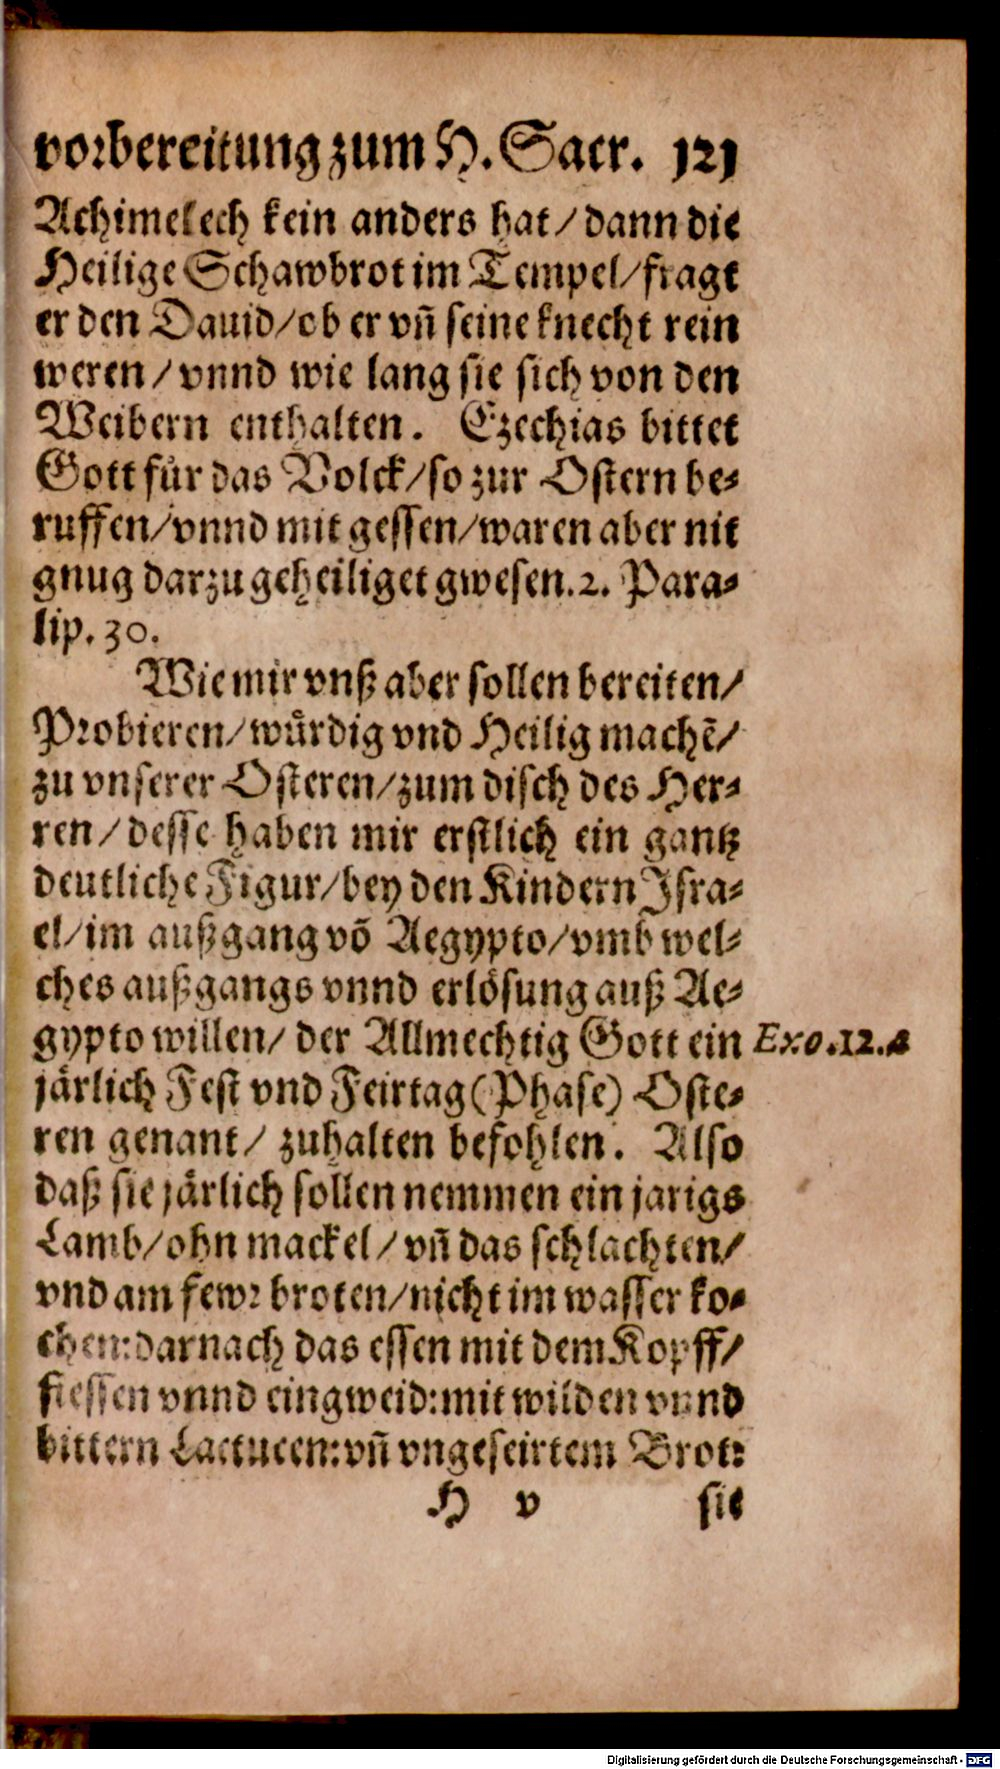 vorbereitung zum H. Sacr. 121
Achimelech kein anders hat/dann die
Heilige Schawbrot im Tempel/fragt
er den Dauid/ob er vñ seine knecht rein
weren/vnnd wie lang sie sich von den
Weibern enthalten. Ezechias bittet
Gott fuͤr das Volck/so zur Ostern be⸗
ruffen/vnnd mit gessen/waren aber nit
gnug darzu geheiliget gwesen.2. Para⸗
lip. 30.
Wie mir vnß aber sollen bereiten/
Probieren/wuͤrdig vnd Heilig machẽ/
zu vnserer Osteren/zum disch des Her⸗
ren/desse haben mir erstlich ein gantz
deutliche Figur/bey den Kindern Isra⸗
el/im außgang võ Aegypto/vmb wel⸗
ches außgangs vnnd erloͤsung auß Ae⸗
gypto willen/ der Allmechtig Gott ein
Exo.12.a
jaͤrlich Fest vnd Feirtag (Phase) Oste⸗
ren genant/ zuhalten befohlen. Also
daß sie jaͤrlich sollen nemmen ein jarigs
Lamb/ohn mackel/vñ das schlachten/
vnd am fewr broten/nicht im wasser ko⸗
chen:darnach das essen mit dem Kopff/
fiessen vnnd eingweid:mit wilden vnnd
bittern Lactucen:vñ vngeseirtem Brot:
H v sie
Digitalisierung gefördert durch die Deutsche Forschungsgemeinschaft - DFG